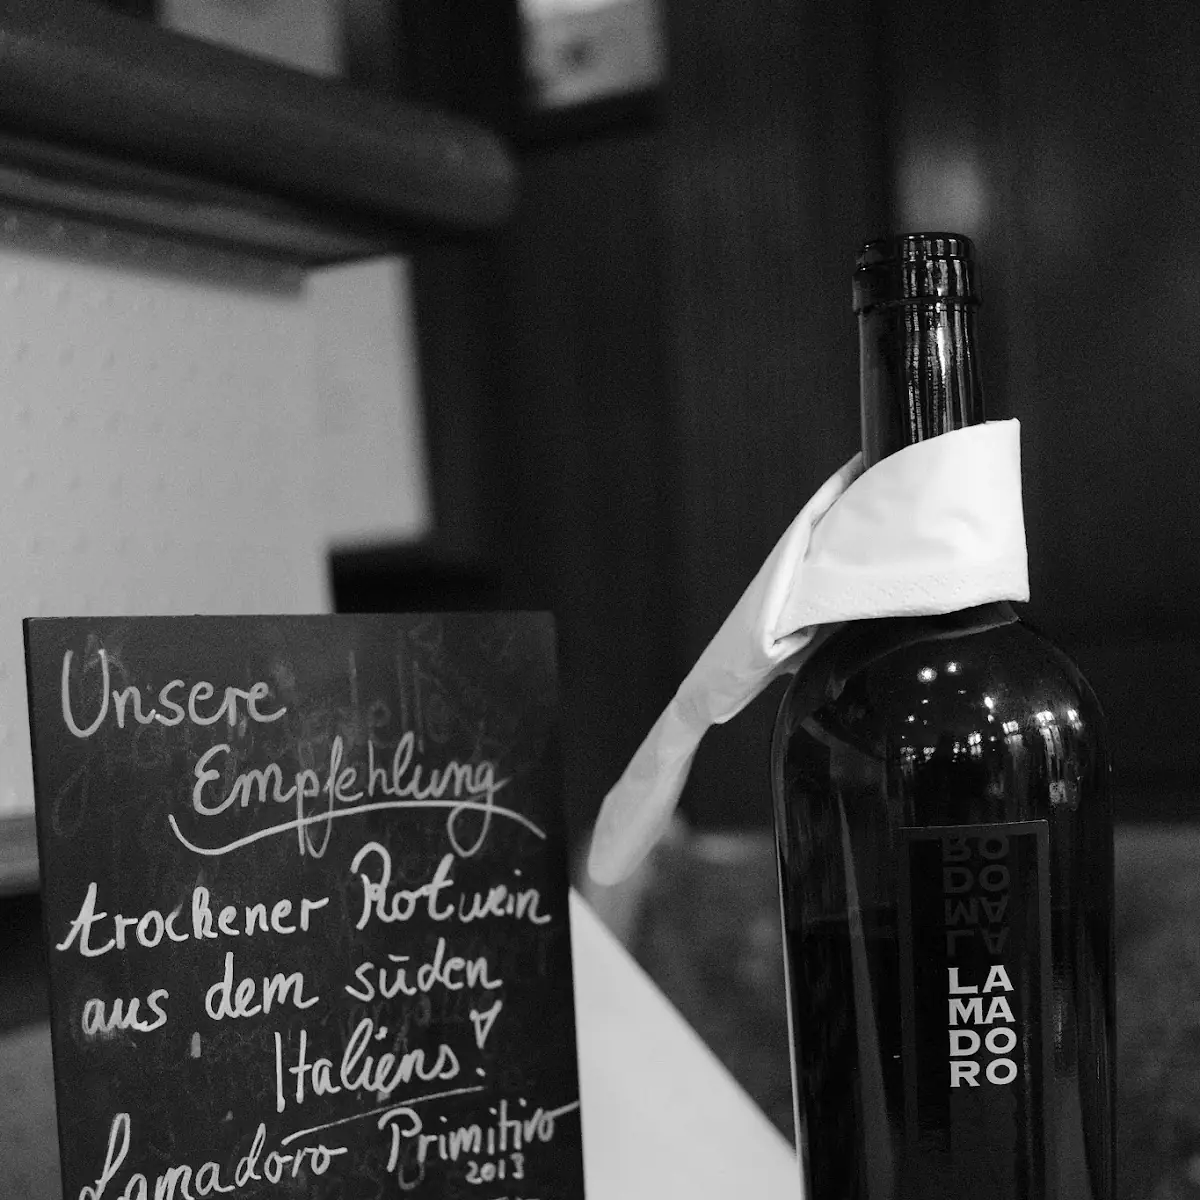 Unsere
Empfehlung
trockener Rotwein
aus dem süden
Italiens!
Lamadoro Primitivo
2013
LA
MA
DO
RO